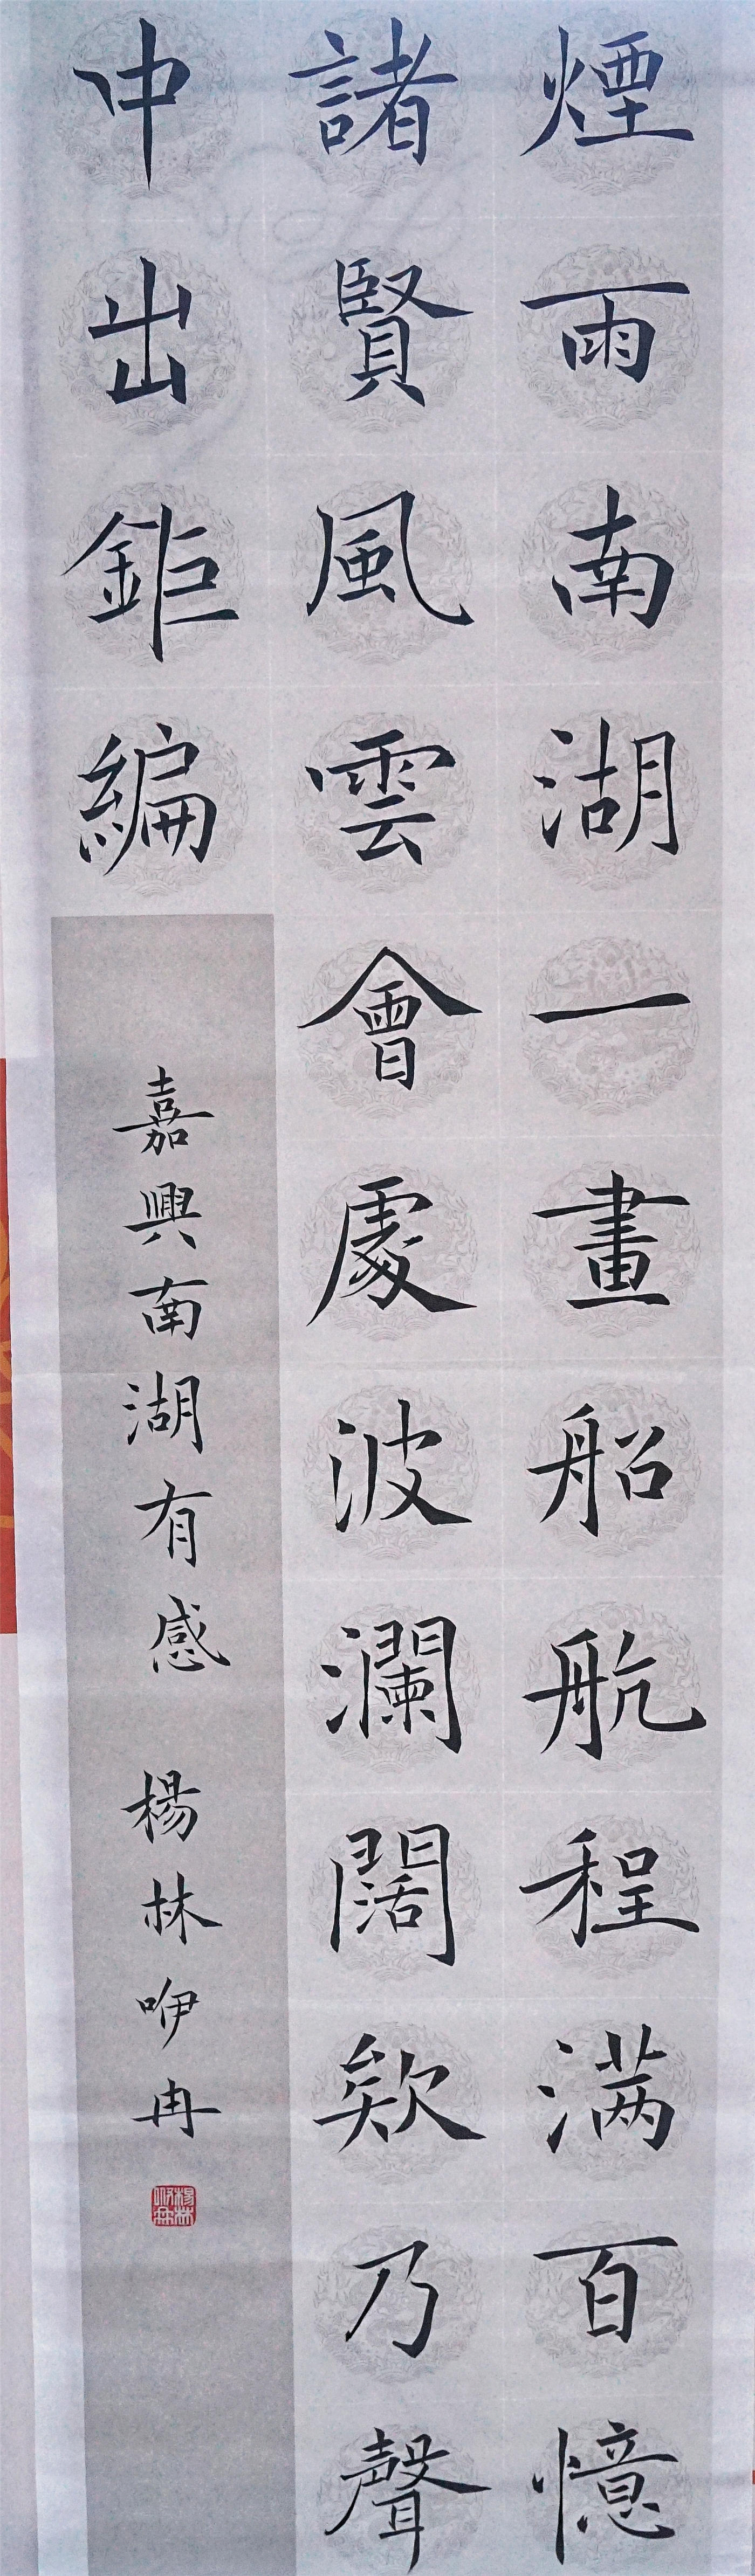 煙雨南湖一畫船航程满百憶
諸賢風雲會處波瀾闊欸乃聲
中出鉅編
嘉興南湖有感 楊林咿冉
楊林咿冉